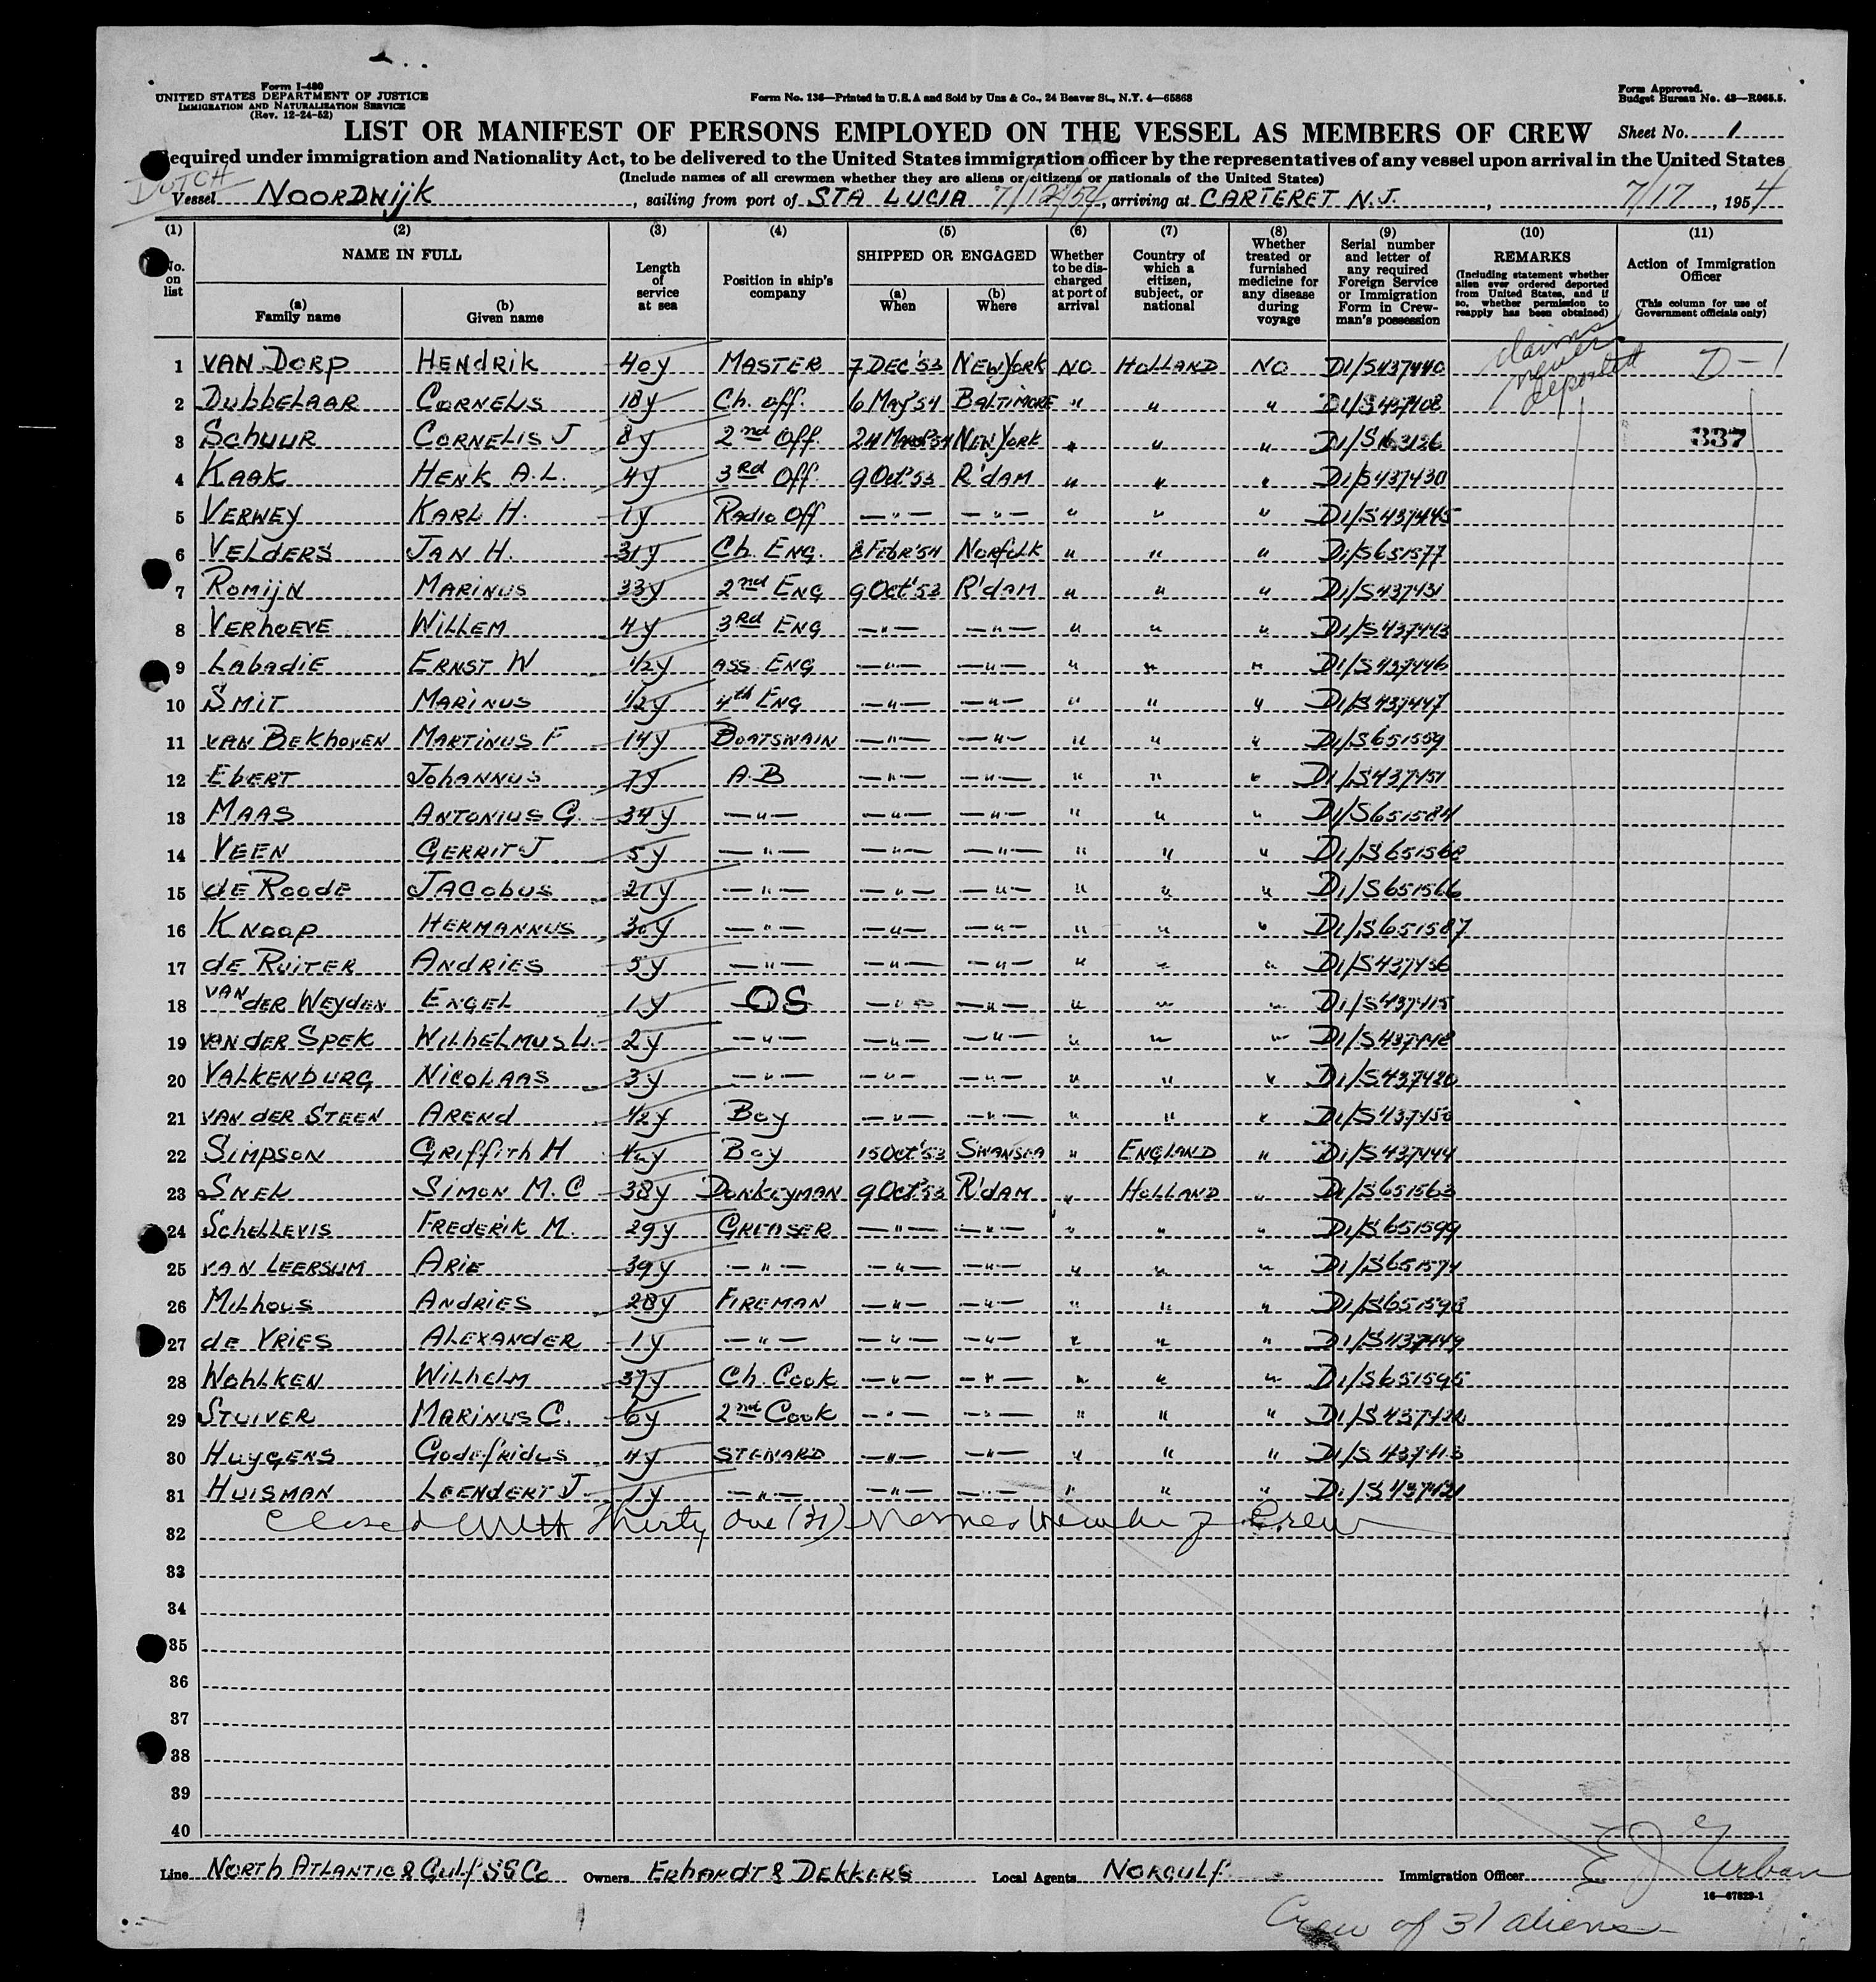 Form I-480
UNITED STATES DEPARTMENT OF JUSTICE
IMMIGRATION AND NATURALIZATION SERVICE
(Rev. 12-24-52)
Form No. 136—Printed in U.S.A and Sold by Unz & Co., 24 Beaver St., N.Y. 4—65868
Form Approved.
Budget Bureau No. 43—R065.5.
LIST OR MANIFEST OF PERSONS EMPLOYED ON THE VESSEL AS MEMBERS OF CREW
Sheet No. 1
equired under immigration and Nationality Act, to be delivered to the United States immigration officer by the representatives of any vessel upon arrival in the United States
(Include names of all crewmen whether they are aliens or citizens or nationals of the United States)
DUTCH
Vessel NOORDWIJK, sailing from port of STA LUCIA 7/12/54, arriving at CARTERET N.J., 7/17, 1954
(1) (2) (3) (4) (5) (6) (7) (8) (9) (10) (11)
No. on list
NAME IN FULL
(a) Family name
(b) Given name
Length of service at sea
Position in ship's company
SHIPPED OR ENGAGED
(a) When
(b) Where
Whether to be discharged at port of arrival
Country of which a citizen, subject, or national
Whether treated or furnished medicine for any disease during voyage
Serial number and letter of any required Foreign Service or Immigration Form in Crewman's possession
REMARKS
(Including statement whether alien ever ordered deported from United States, and if so, whether permission to reapply has been obtained)
Action of Immigration Officer
(This column for use of Government officials only)
claims never deported
1 VAN DORP HENDRIK 40y MASTER 7 DEC '53 NEW YORK NO HOLLAND NO D1/S437440 D-1
2 DUBBELAAR CORNELIS 18y Ch. Off. 6 MAY '54 BALTIMORE " " " D1/S437408
3 SCHUUR CORNELIS J 8y 2nd Off. 24 NEW YORK " " " D1/S163126 337
4 KAAK HENK A.L. 4y 3RD Off. 9 Oct '53 R'DAM " " " D1/S437430
5 VERWEY KARL H. 1y RADIO Off —"— —"— " " " D1/S437445
6 VELDERS JAN H. 31y Ch. ENG. 8 FEBR '54 NORFOLK " " " D1/S651577
7 ROMIJN MARINUS 33y 2nd ENG 9 Oct '53 R'DAM " " " D1/S437431
8 VERHOEVE WILLEM 4y 3RD ENG —"— —"— " " " D1/S437443
9 LABADIE ERNST W 1/2y ASS. ENG —"— —"— " " " D1/S437446
10 SMIT MARINUS 1/2y 4th ENG —"— —"— " " " D1/S437447
11 VAN BEKHOVEN MARTINUS F 14y BOATSWAIN —"— —"— " " " D1/S651559
12 EBERT JOHANNUS 7y A.B —"— —"— " " " D1/S437451
13 MAAS ANTONIUS G. 34y —"— —"— —"— " " " D1/S651584
14 VEEN GERRIT J 5y —"— —"— —"— " " " D1/S651568
15 DE ROODE JACOBUS 21y —"— —"— —"— " " " D1/S651566
16 KNOOP HERMANNUS 30y —"— —"— —"— " " " D1/S651587
17 DE RUITER ANDRIES 5y —"— —"— —"— " " " D1/S437436
18 VAN DER WEYDEN ENGEL 1y OS —"— —"— " " " D1/S437415
19 VAN DER SPEK WILHELMUS L. 2y —"— —"— —"— " " "
20 VALKENBURG NICOLAAS 3y —"— —"— —"— " " " D1/S437420
21 VAN DER STEEN AREND 1/2y BOY —"— —"— " " " D1/S437450
22 SIMPSON GRIFFITH H BOY 15 Oct '53 SWANSEA " ENGLAND " D1/S437444
23 SNEL SIMON M.C 38y DONKEYMAN 9 Oct '53 R'DAM " HOLLAND " D1/S651563
24 SCHELLEVIS FREDERIK M. 29y GREASER —"— —"— " " " D1/S651599
25 VAN LEERSUM ARIE 39y —"— —"— —"— " " " D1/S651574
26 MILHOUS ANDRIES 28y FIREMAN —"— —"— " " " D1/S651598
27 DE VRIES ALEXANDER 1y —"— —"— —"— " " " D1/S437449
28 WOHLKEN WILHELM 37y Ch. COOK —"— —"— " " " D1/S651595
29 STUIVER MARINUS C. 6y 2nd COOK —"— —"— " " "
30 HUYGENS GODEFRIDUS 4y STEWARD —"— —"— " " " D1/S437413
31 HUISMAN LEENDERT J. 1y —"— —"— —"— " " " D1/S437421
32 Closed with Thirty one (31) Names Crew
33
34
35
36
37
38
39
40
Line NORTH ATLANTIC & GULF SS Co Owners ERHARDT & DEKKERS Local Agents NORGULF Immigration Officer E J Urban
16—67829-1
Crew of 31 aliens